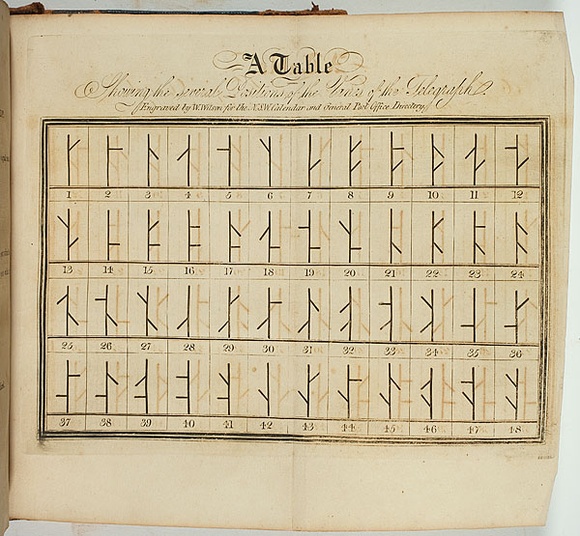 A Table
Shewing the several Positions of the Vanes of the Telegraph
Engraved by W. Wilson for the N.S.W. Calendar and General Post Office Directory.
1 2 3 4 5 6 7 8 9 10 11 12
13 14 15 16 17 18 19 20 21 22 23 24
25 26 27 28 29 30 31 32 33 34 35 36
37 38 39 40 41 42 43 44 45 46 47 48